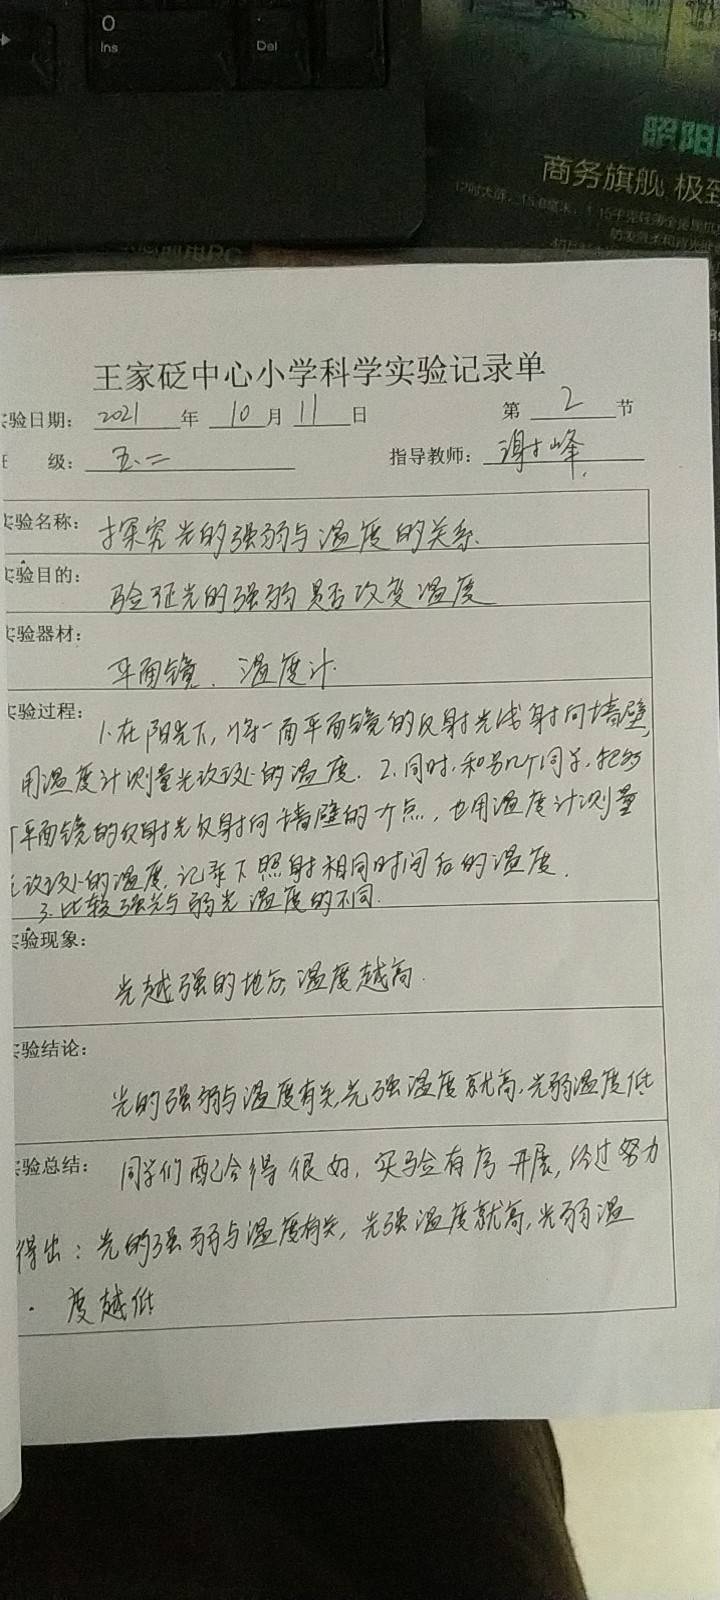 0
Ins
Del
照阳
商务旗舰 极致
王家砭中心小学科学实验记录单
实验日期： 2021 年 10 月 11 日 第 2 节
级： 五.二 指导教师： 谢峰
实验名称： 探究光的强弱与温度的关系.
实验目的：
验证光的强弱是否改变温度
实验器材：
平面镜. 温度计.
实验过程： 1.在阳光下,将一面平面镜的反射光线射向墙壁,
用温度计测量光斑处的温度. 2.同时,和另几个同学,把
平面镜的反射光反射向墙壁的一点, 也用温度计测量
处的温度, 记录下照射相同时间后的温度.
3.比较强光与弱光温度的不同.
实验现象：
光越强的地方,温度越高.
实验结论：
光的强弱与温度有关,光强温度就高,光弱温度低
实验总结： 同学们配合得很好, 实验有序开展, 经过努力
得出: 光的强弱与温度有关, 光强温度就高,光弱温
度越低